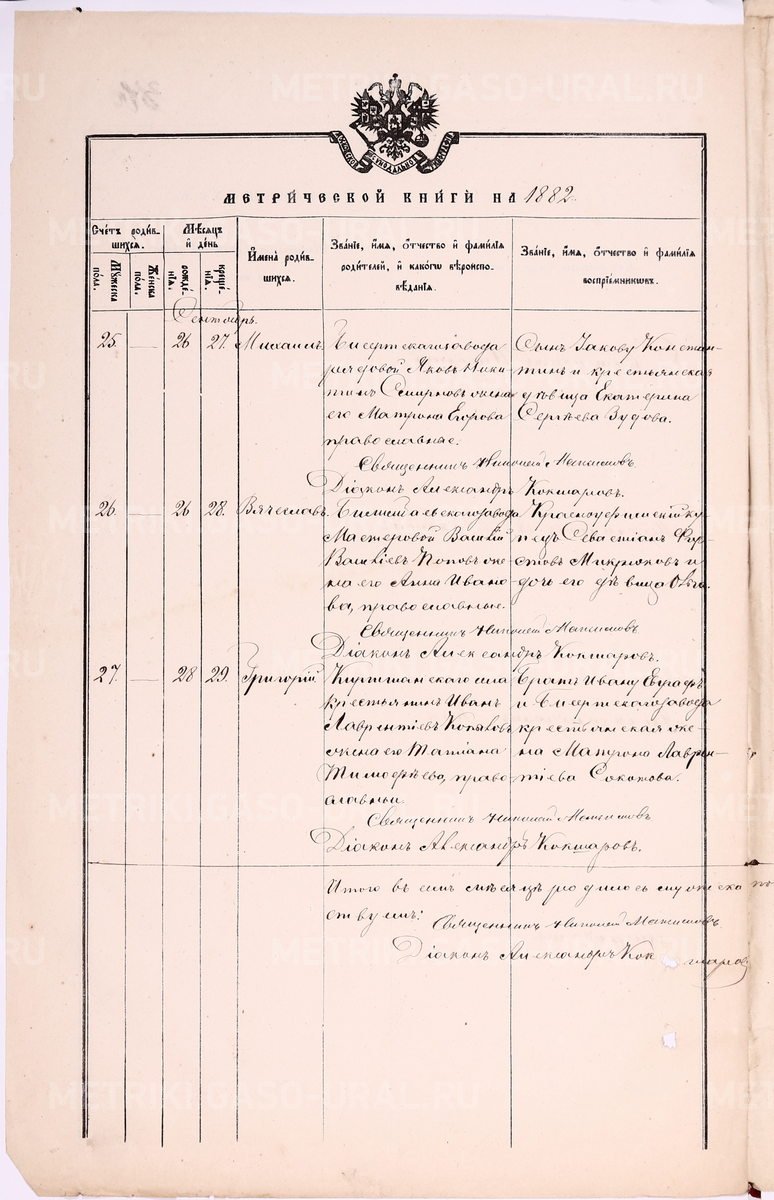 METRIKI-GASO-URAL.RU
МЕТРИЧЕСКОЙ КНИГИ НА 1882.
Счетъ родив-
шихся.
Мужеска пола.
Женска пола.
Мѣсяцъ и день
рожде-
нія.
креще-
нія.
Имена родив-
шихся.
Званіе, имя, отчество и фамилія
родителей, и какого вѣроиспо-
вѣданія.
Званіе, имя, отчество и фамилія
воспріемниковъ.
Сентябрь.
25. — 26 27. Михаилъ.
Бисертскаго завода
рядовой Яковъ Ники-
тинъ Смирновъ и жена
его Матрона Егорова
православные.
Сынъ Іакову Констан-
тинъ и крестьянская
дѣвица Екатерина
Сергѣева Зудова.
Священникъ Николай Максимовъ
Діаконъ Александръ Кокшаровъ.
26. — 26 28. Вячеславъ.
завода
Мастеровой Василій
Василіевъ Поповъ и же-
на его Анна Ивано-
ва, православные.
Красноуфимскій ку-
пецъ Севастіанъ
Микрюковъ и
дочь его дѣвица Ольга.
Священникъ Николай Максимовъ
Діаконъ Александръ Кокшаровъ.
27. — 28 29. Григорій
села
крестьянинъ Иванъ
Лаврентіевъ
и жена его Татіана
Тимофѣева, право-
славные.
Братъ Ивану
и Бисертскаго завода
крестьянская же-
на Матрона Лаврен-
тіева
Священникъ Николай Максимовъ
Діаконъ Александръ Кокшаровъ.
Итого въ семъ мѣсяцѣ родилось мужеска по
Священникъ Николай Максимовъ
Діаконъ Александръ Кок шаровъ